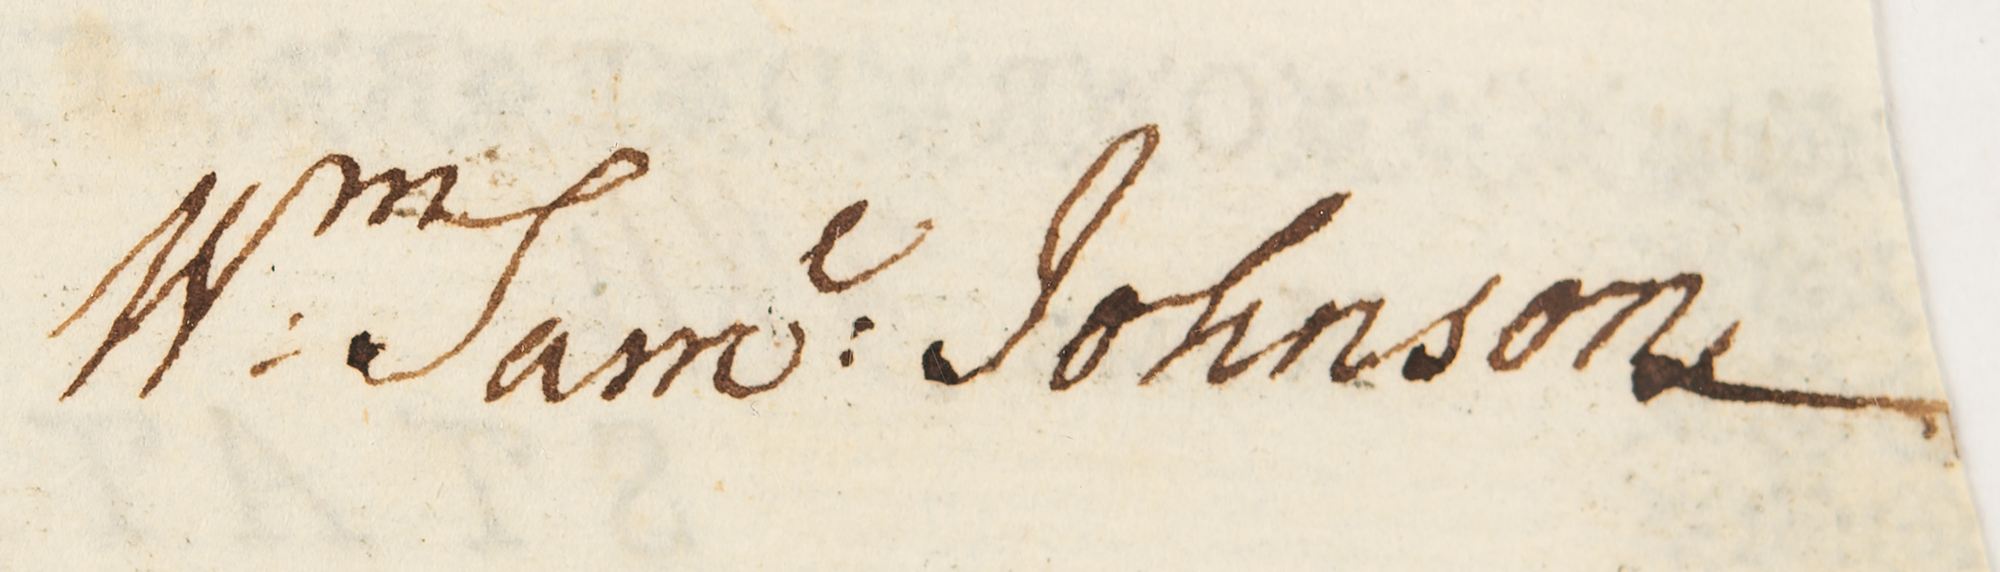 Wm: Saml: Johnson